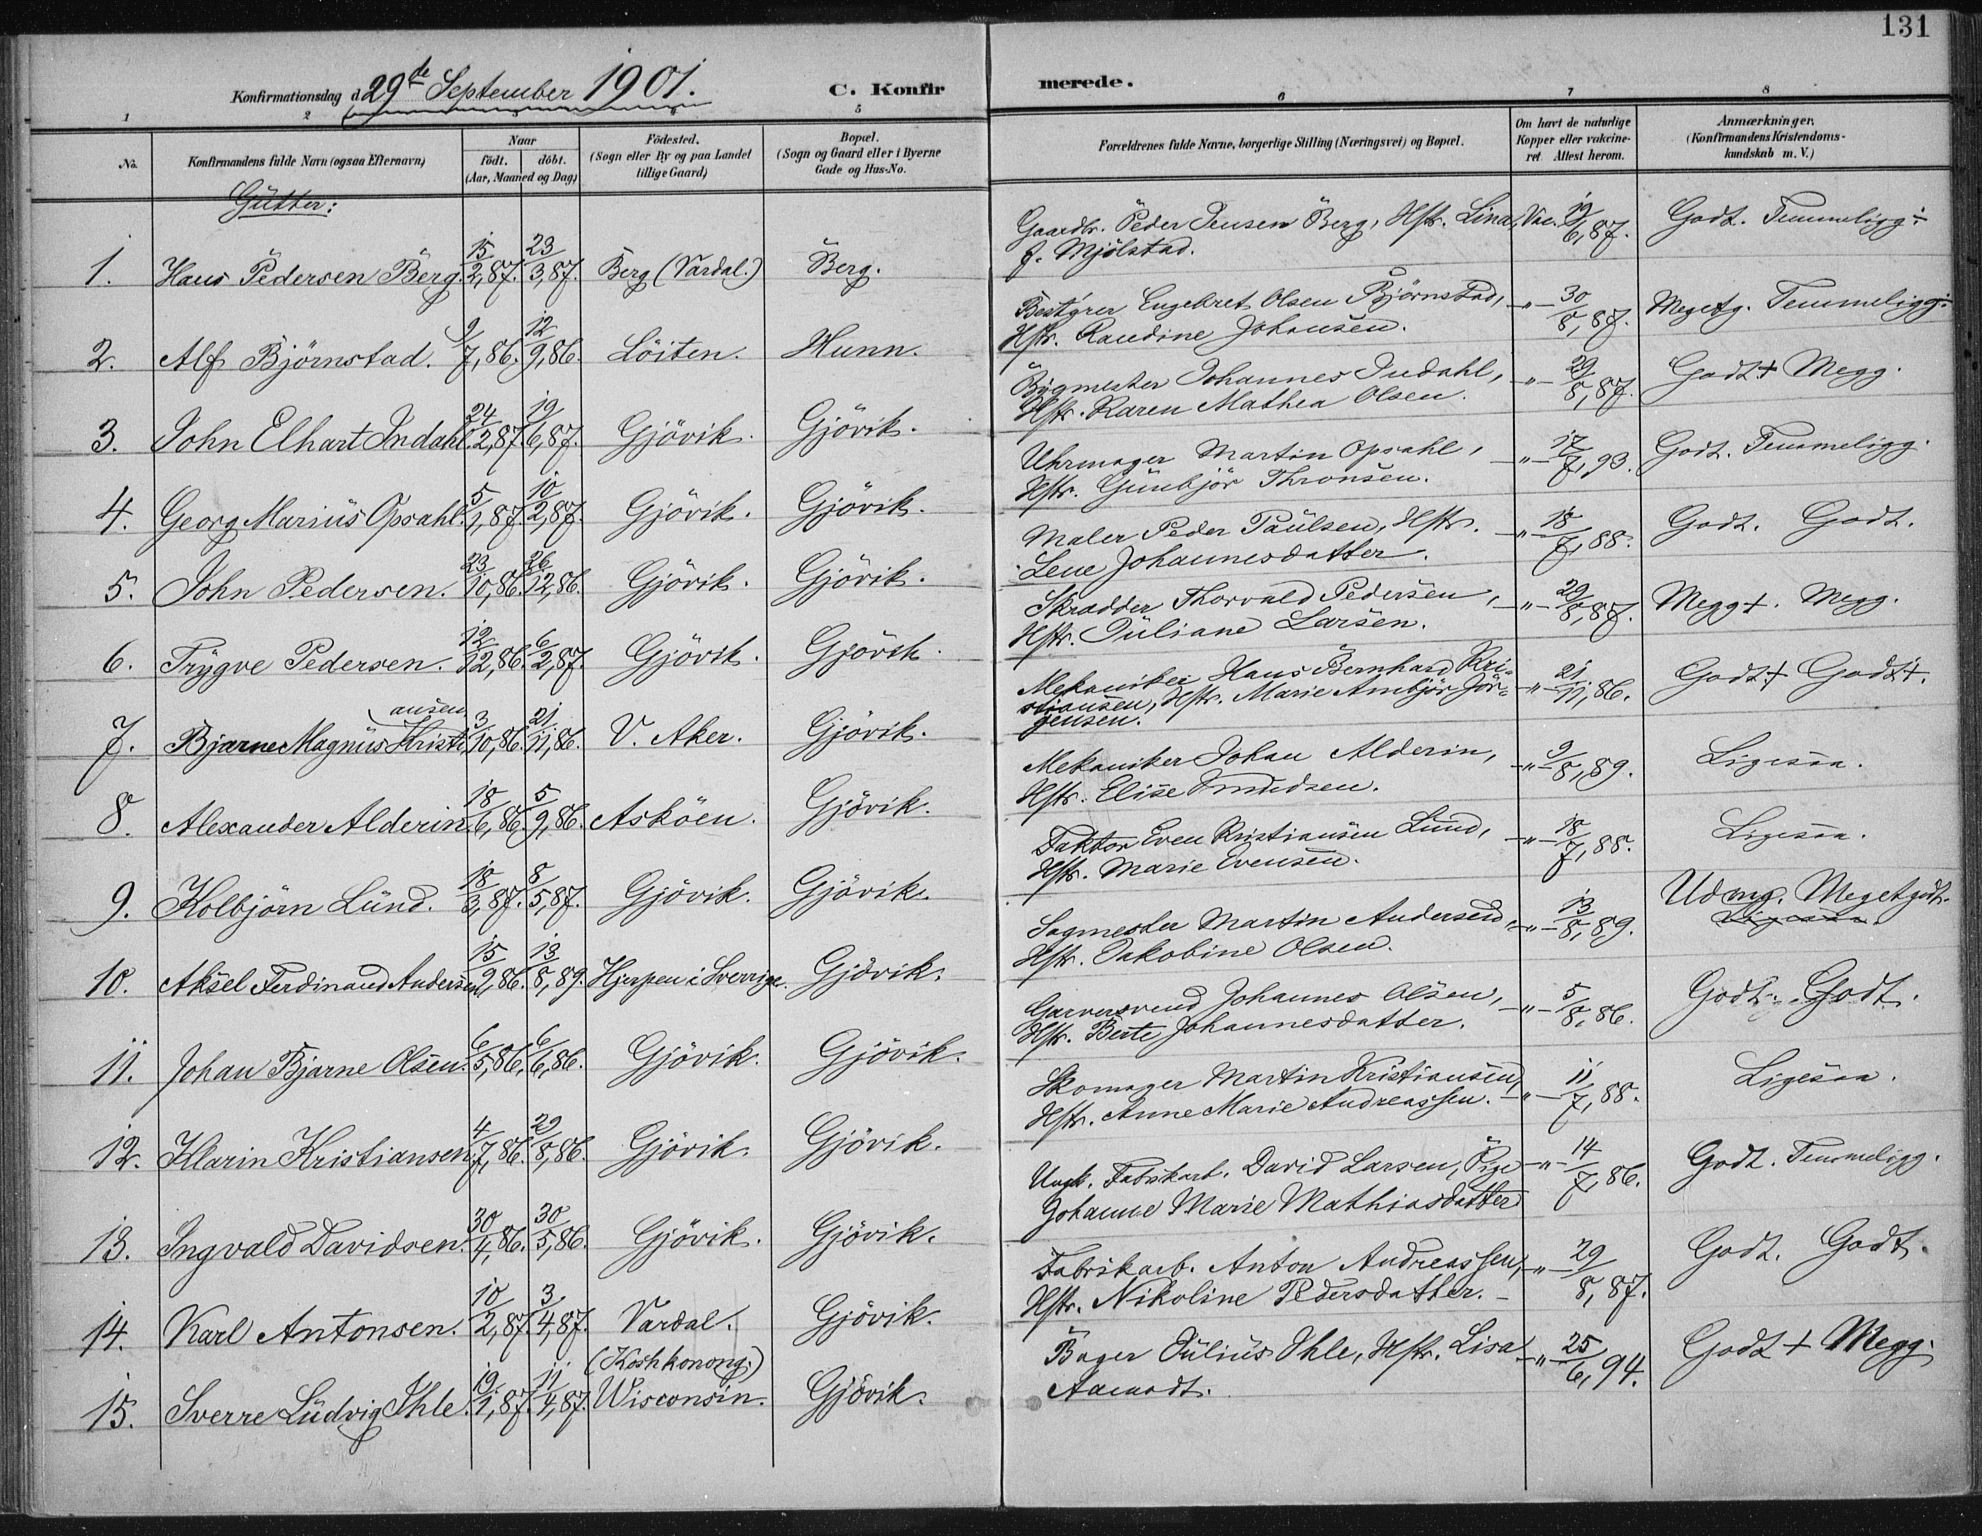 131
Konfirmationsdag d. 29de September 1901.
C. Konfirmerede.
1 2 3 4 5 6 7 8
No. Konfirmandens fulde Navn (ogsaa Efternavn) Naar födt. döbt. (Aar, Maaned og Dag) Födested. (Sogn eller By og paa Landet tillige Gaard) Bopæl. (Sogn og Gaard eller i Byerne Gade og Hus-No. Forældrenes fulde Navne, borgerlige Stilling (Næringsvei) og Bopæl. Om havt de naturlige Kopper eller vakcineret Attest herom. Anmærkninger. (Konfirmandens Kristendomskundskab m. V.)
Gutter:
1. Hans Pedersen Berg. 15/2,87. 23/3,87. Berg (Vardal.) Berg. Gaardbr. Peder Jensen Berg, Hstr. Lina f. Mjölstad. Vac. 19/6,87. Godt. Temmeligg÷
2. Alf Björnstad. 9/7,86. 12/9,86. Löiten. Hunn. Bestyrer Engebret Olsen Björnstad, Hstr. Randine Johansen. –"– 30/8,87. Megetg. Temmeligg÷
3. John Elhart Indahl. 24/2,87. 19/6,87. Gjövik. Gjövik. Bygmester Johannes Indahl, Hstr. Karen Mathea Olsen. –"– 29/8,87. Godt+ Megg.
4. Georg Marius Opsahl. 5/1,87. 10/2,87. Gjövik. Gjövik. Uhrmager Martin Opsahl, Hstr. Gunbjör Thronsen. –"– 17/7,93. Godt. Temmeligg.
5. John Pedersen. 23/10,86. 26/12,86. Gjövik. Gjövik. Maler Peder Paulsen, Hstr. Lene Johannesdatter. –"– 18/7,88. Godt. Godt.
6. Trygve Pedersen. 12/12,86. 6/2,87. Gjövik. Gjövik. Skrædder Thorvald Pedersen, Hstr. Juliane Larsen. –"– 29/8,87. Megg+. Megg.
7. Bjarne Magnus Kristiansen 3/10,86. 21/11,86. V. Aker. Gjövik. Mekaniker Hans Bernhard Kristiansen, Hstr. Marie Ambjör Jörgensen. –"– 21/11,86. Godt+ Godt+.
8. Alexander Alderin. 18/6,86. 5/9,86. Asköen. Gjövik. Mekaniker Johan Alderin, Hstr. Elise Knudsen. –"– 9/8,89. Ligesaa.
9. Kolbjörn Lund. 18/3,87. 8/5,87. Gjövik. Gjövik. Faktor Even Kristiansen Lund, Hstr. Marie Evensen. –"– 18/7,88. Ligesaa.
10. Aksel Ferdinand Andersen 15/2,86. 13/8,89. Hjerpen i Sverrige. Gjövik. Sagmester Martin Andersen, Hstr. Jakobine Olsen. –"– 13/8,89. Udmg. Megetgodt. Ligesaa.
11. Johan Bjarne Olsen. 6/5,86. 6/6,86. Gjövik. Gjövik. Garversvend Johannes Olsen, Hstr. Berte Johannesdatter. –"– 5/8,86. Godt. Godt.
12. Klarin Kristiansen. 4/7,86. 29/8,86. Gjövik. Gjövik. Skomager Martin Kristiansen, Hstr. Anne Marie Andreassen. –"– 11/7,88. Ligesaa.
13. Ingvald Davidsen. 30/4,86. 30/5,86. Gjövik. Gjövik. Ungk. Fabrikarb. David Larsen, Pige Johanne Marie Mathiasdatter –"– 14/7,86. Godt. Temmeligg.
14. Karl Antonsen. 10/2,87. 3/4,87. Vardal. Gjövik. Fabrikarb. Anton Andreassen, Hstr. Nikoline Pedersdatter. –"– 29/8,87. Godt. Godt.
15. Sverre Ludvig Ihle. 19/1,87. 11/4,87. (Koshkonong.) Wisconsin. Gjövik. Bager Julius Ihle, Hstr. Lisa Aamodt. –"– 25/6,94. Godt + Megg.